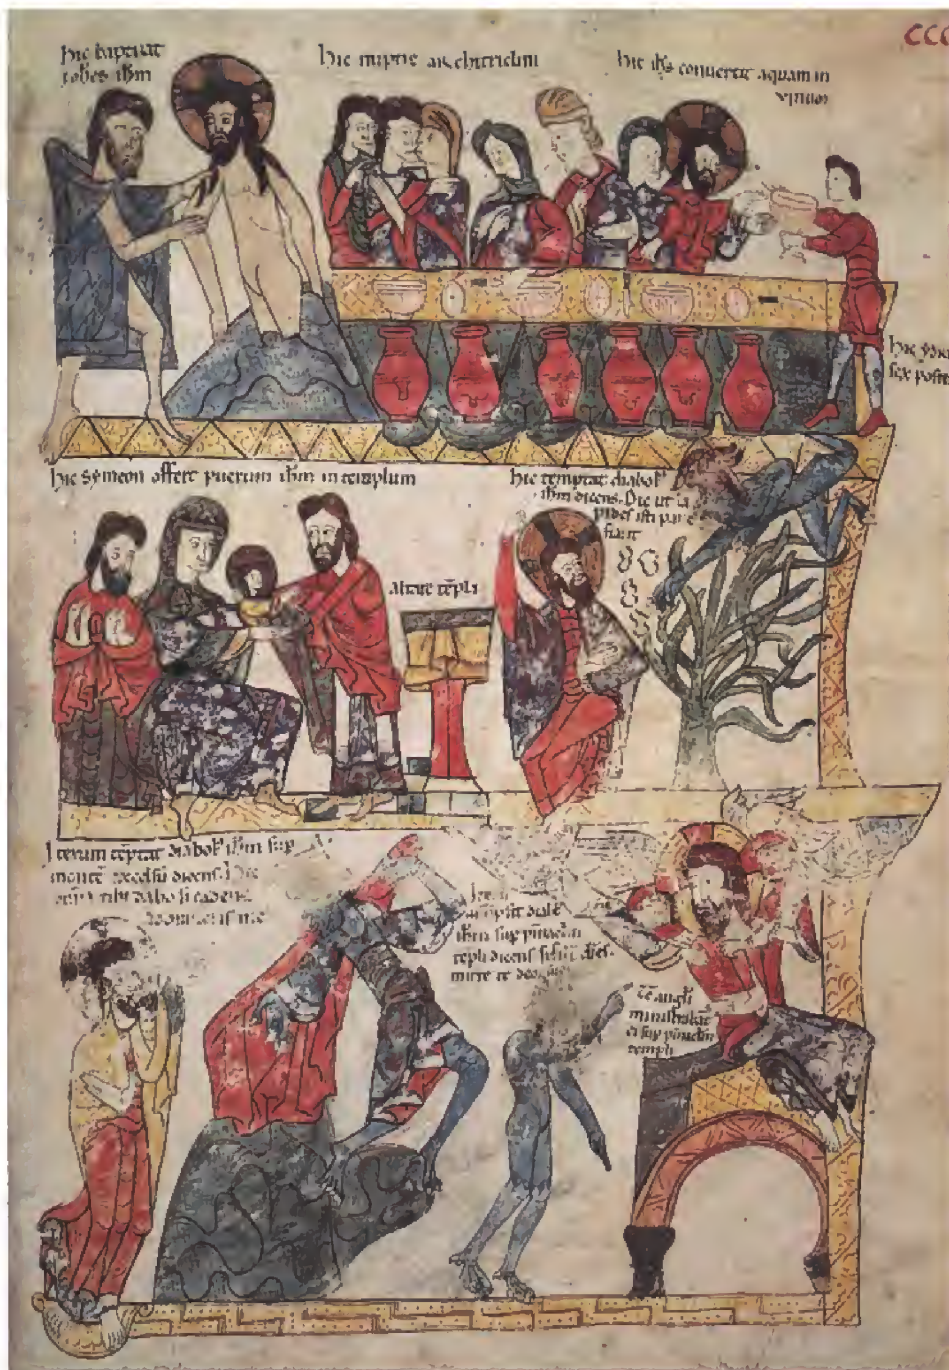 CCC
hic baptizat
iohes ihm
hic nuptie architriclini
hic ihs conuertit aquam in
vinum
hic ydrie
sex posite
hic symeon offert puerum ihm in templum
hic temptat diabol'
ihm dicens. Dic ut la
pides isti panes
fiant
altare te͂pli
Iterum te͂ptat diabol' ihm sup
monte͂ excelsu͂ dicens.
omnia tibi dabo si cadens
adoraueris me
diabol'
ihm sup pinnaculu͂
te͂pli dicens si filiu͂ dei es
mitte te deorsum
angli
ministrabant
ei sup pinnaculu͂
templi